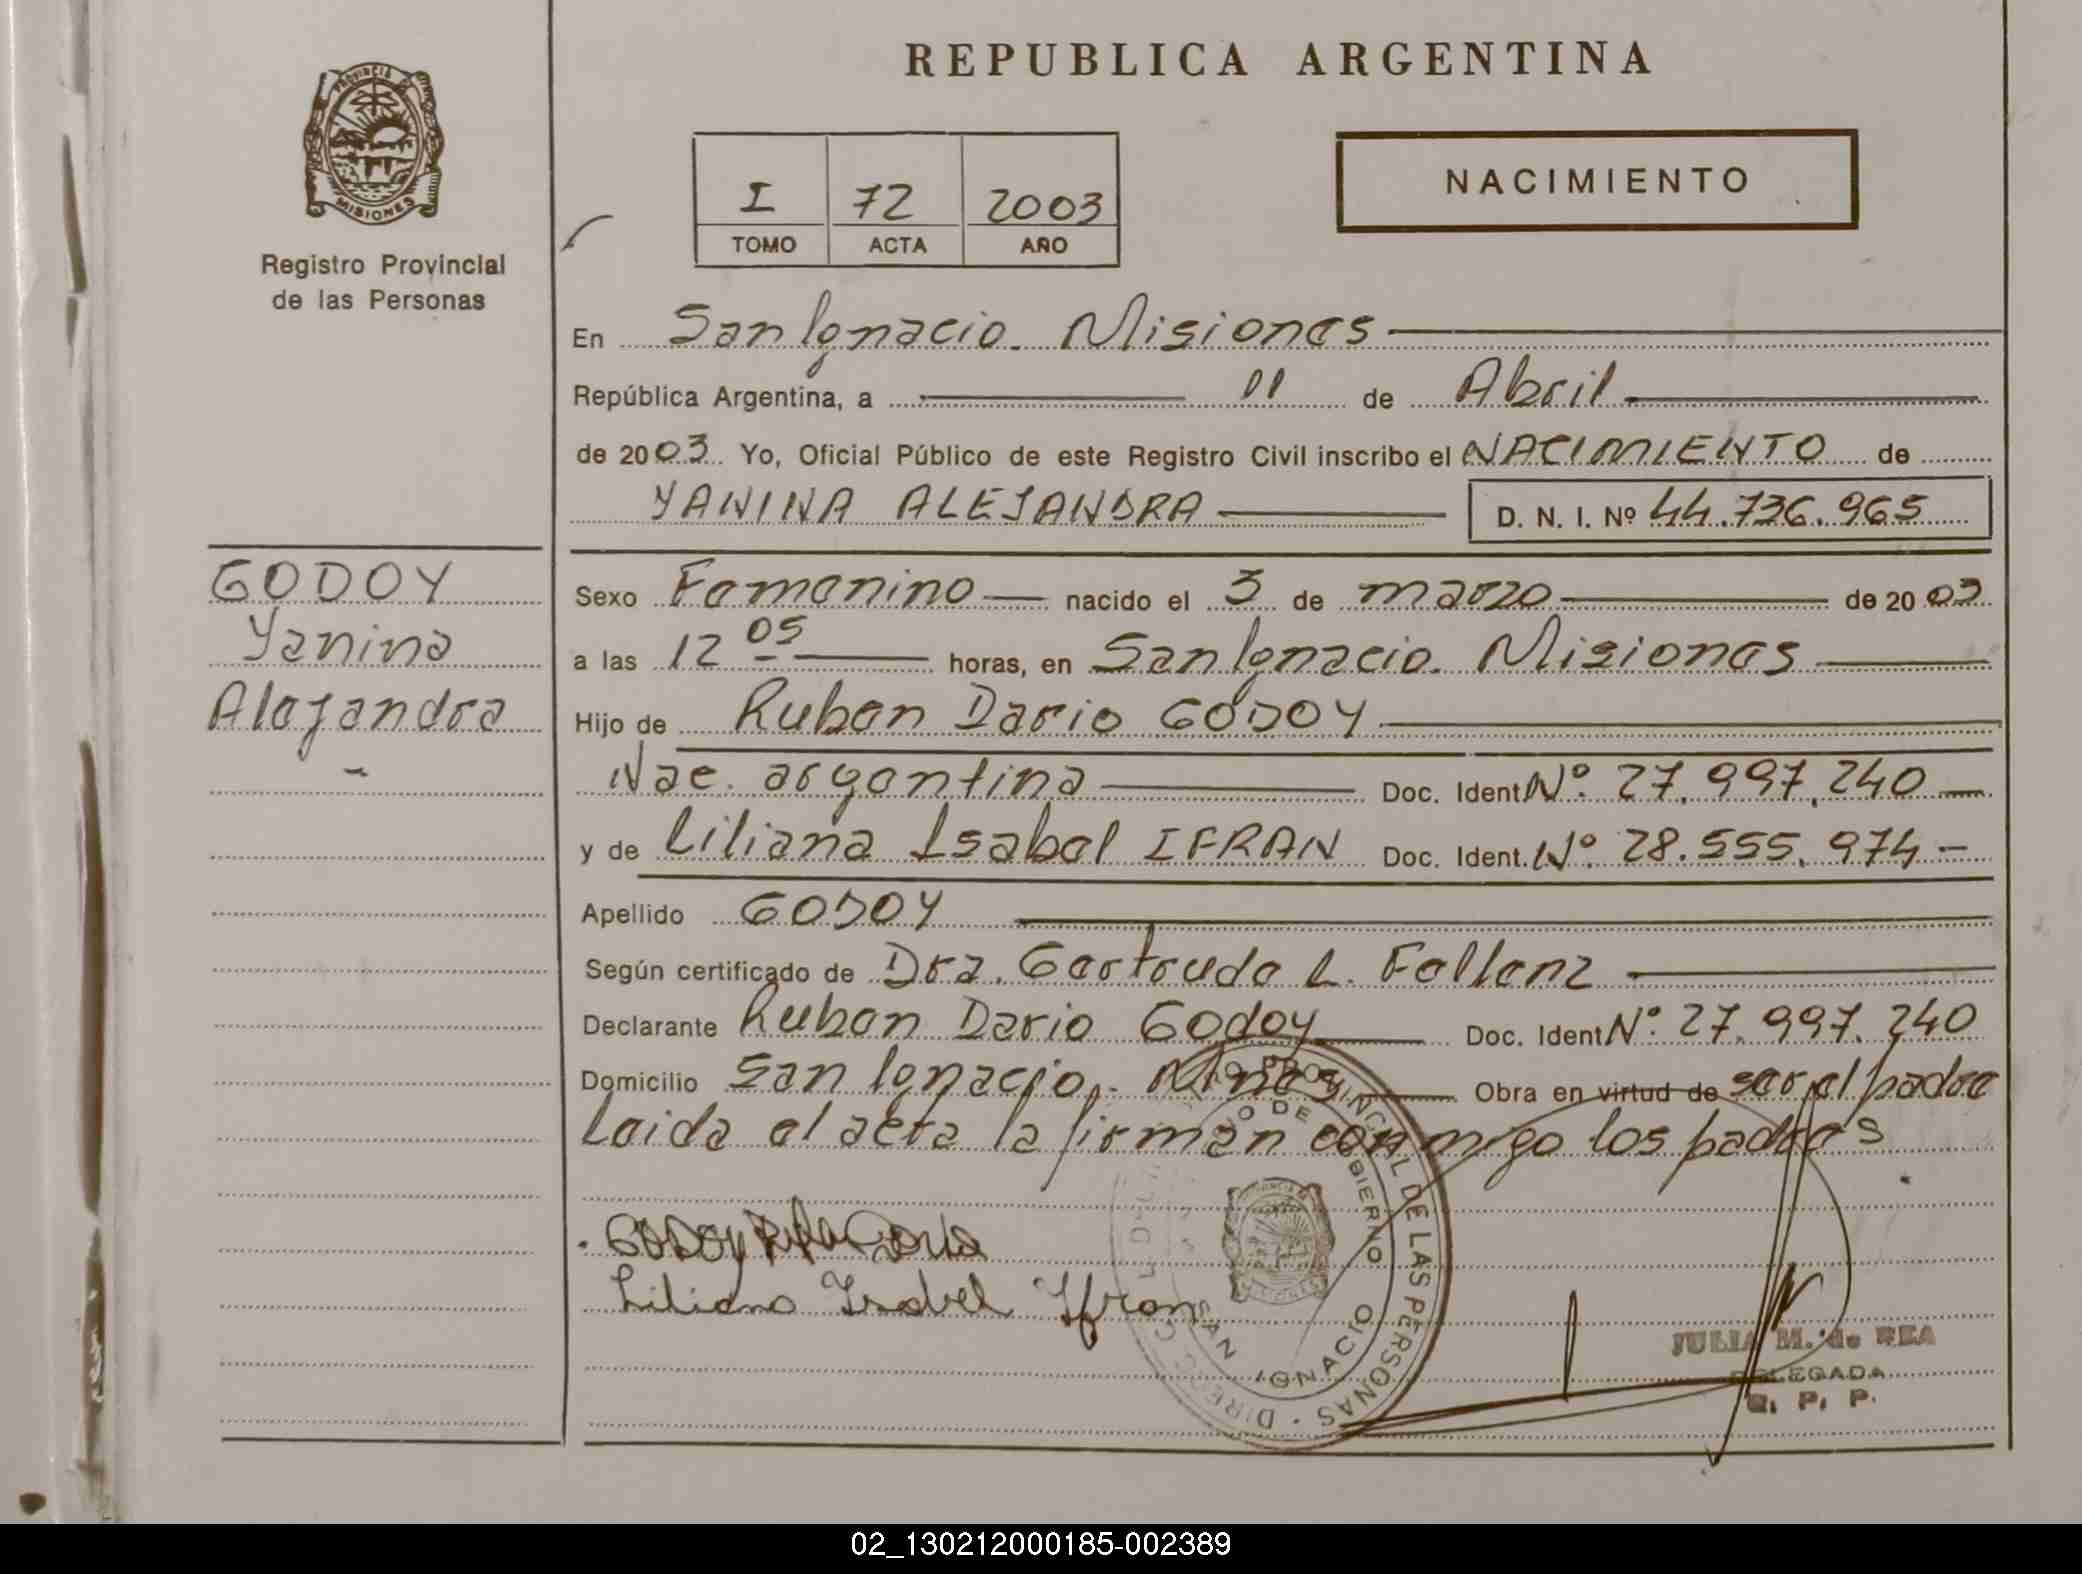 REPUBLICA ARGENTINA
PROVINCIA
MISIONES
Registro Provincial
de las Personas
I 72 2003
TOMO ACTA AÑO
NACIMIENTO
En San Ignacio. Misiones
República Argentina, a 11 de Abril
de 2003 Yo, Oficial Público de este Registro Civil inscribo el NACIMIENTO de
YANINA ALEJANDRA D. N. I. Nº 44.736.965
GODOY
Yanina
Alejandra
Sexo Femenino nacido el 3 de marzo de 2003
a las 12 05 horas, en San Ignacio. Misiones
Hijo de Ruben Dario GODOY
Nac. argentina Doc. Ident. Nº. 27.997.240
y de Liliana Isabel IFRAN Doc. Ident. Nº. 28.555.974
Apellido GODOY
Según certificado de Dra. Gertrude L. Fellenz
Declarante Ruben Dario Godoy Doc. Ident. Nº. 27.997.240
Domicilio San Ignacio. Mnes Obra en virtud de ser el padre
Leida el acta la firman conmigo los padres
GODOY
Liliana Isabel Ifran
PROVINCIAL DE LAS PERSONAS
SAN IGNACIO
JULIA M. de REA
DELEGADA
R. P. P.
02_130212000185-002389